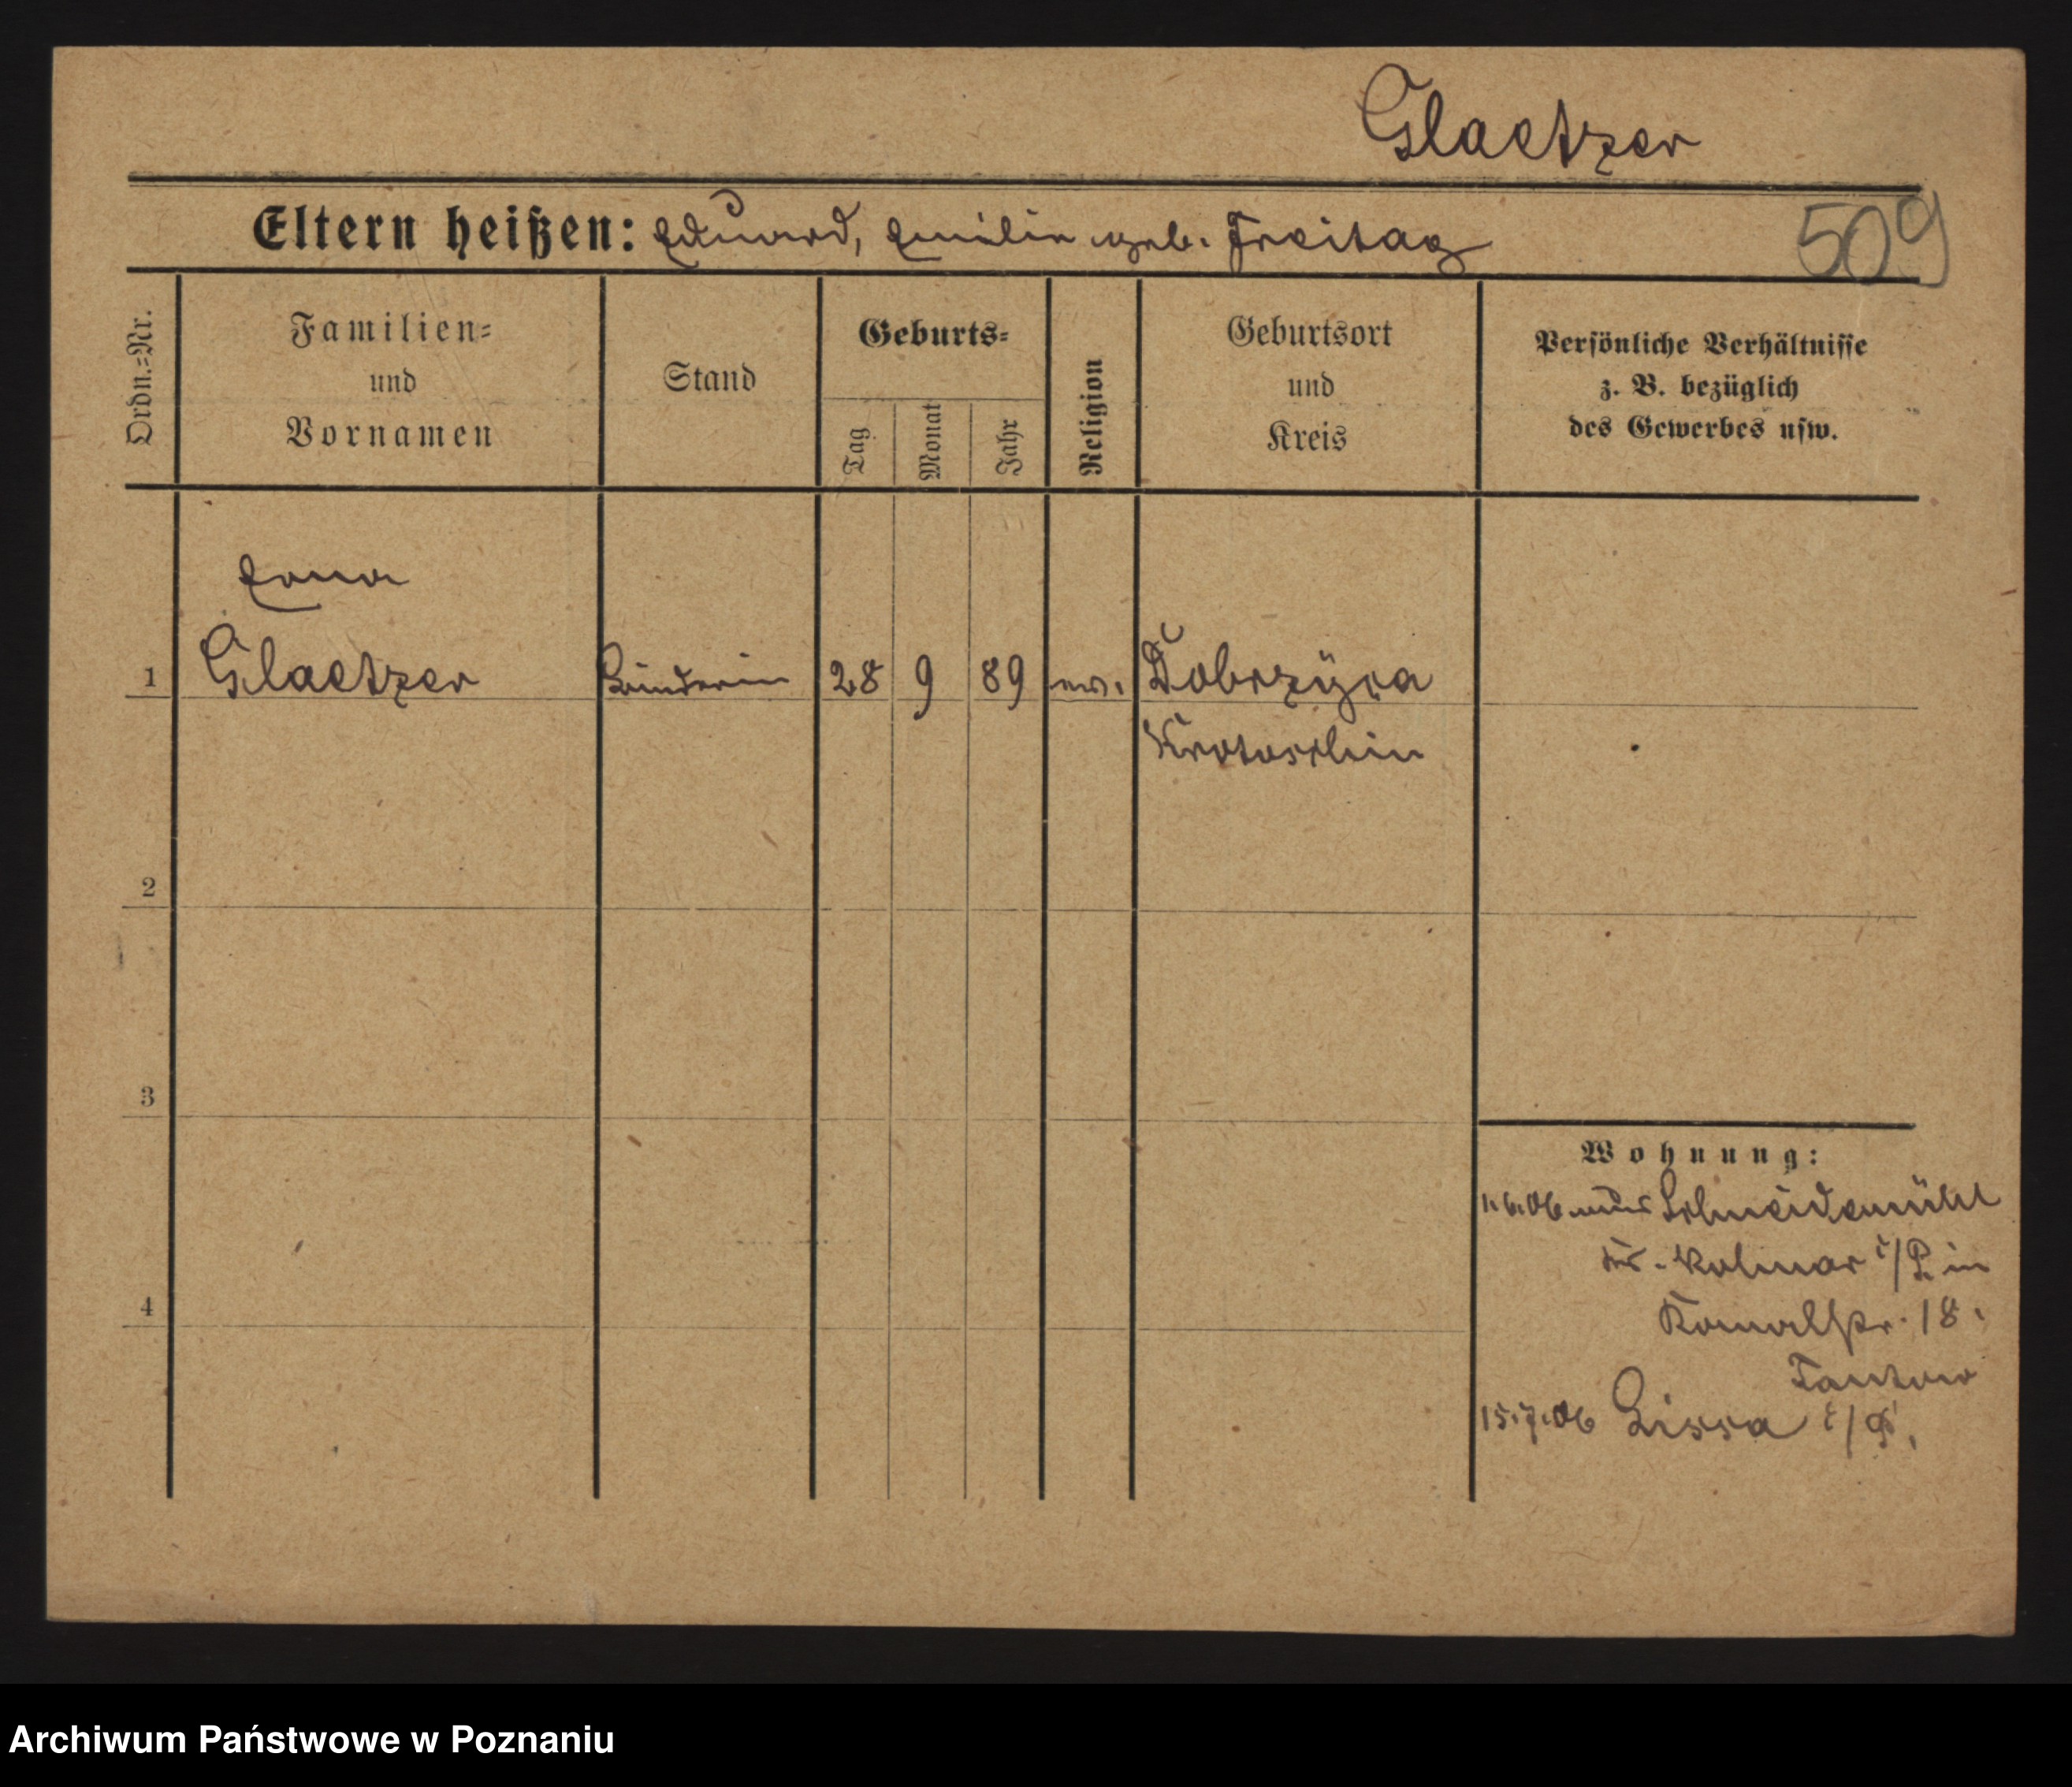 Glaetzer
Eltern heißen: Eduard, Emilie geb. Freitag
509
Ordn.=Nr.
Familien=
und
Vornamen
Stand
Geburts=
Tag
Monat
Jahr
Religion
Geburtsort
und
Kreis
Persönliche Verhältnisse
z. B. bezüglich
des Gewerbes usw.
Erna
1 Glaetzer Binderin 28 9 89 ev. Dobrzyca
Krotoschin
2
3
4
Wohnung:
1.6.06 aus Schneidemühl
Kr. Kolmar i/P. in
18.
15.7.06 Lissa i/P.
Archiwum Państwowe w Poznaniu